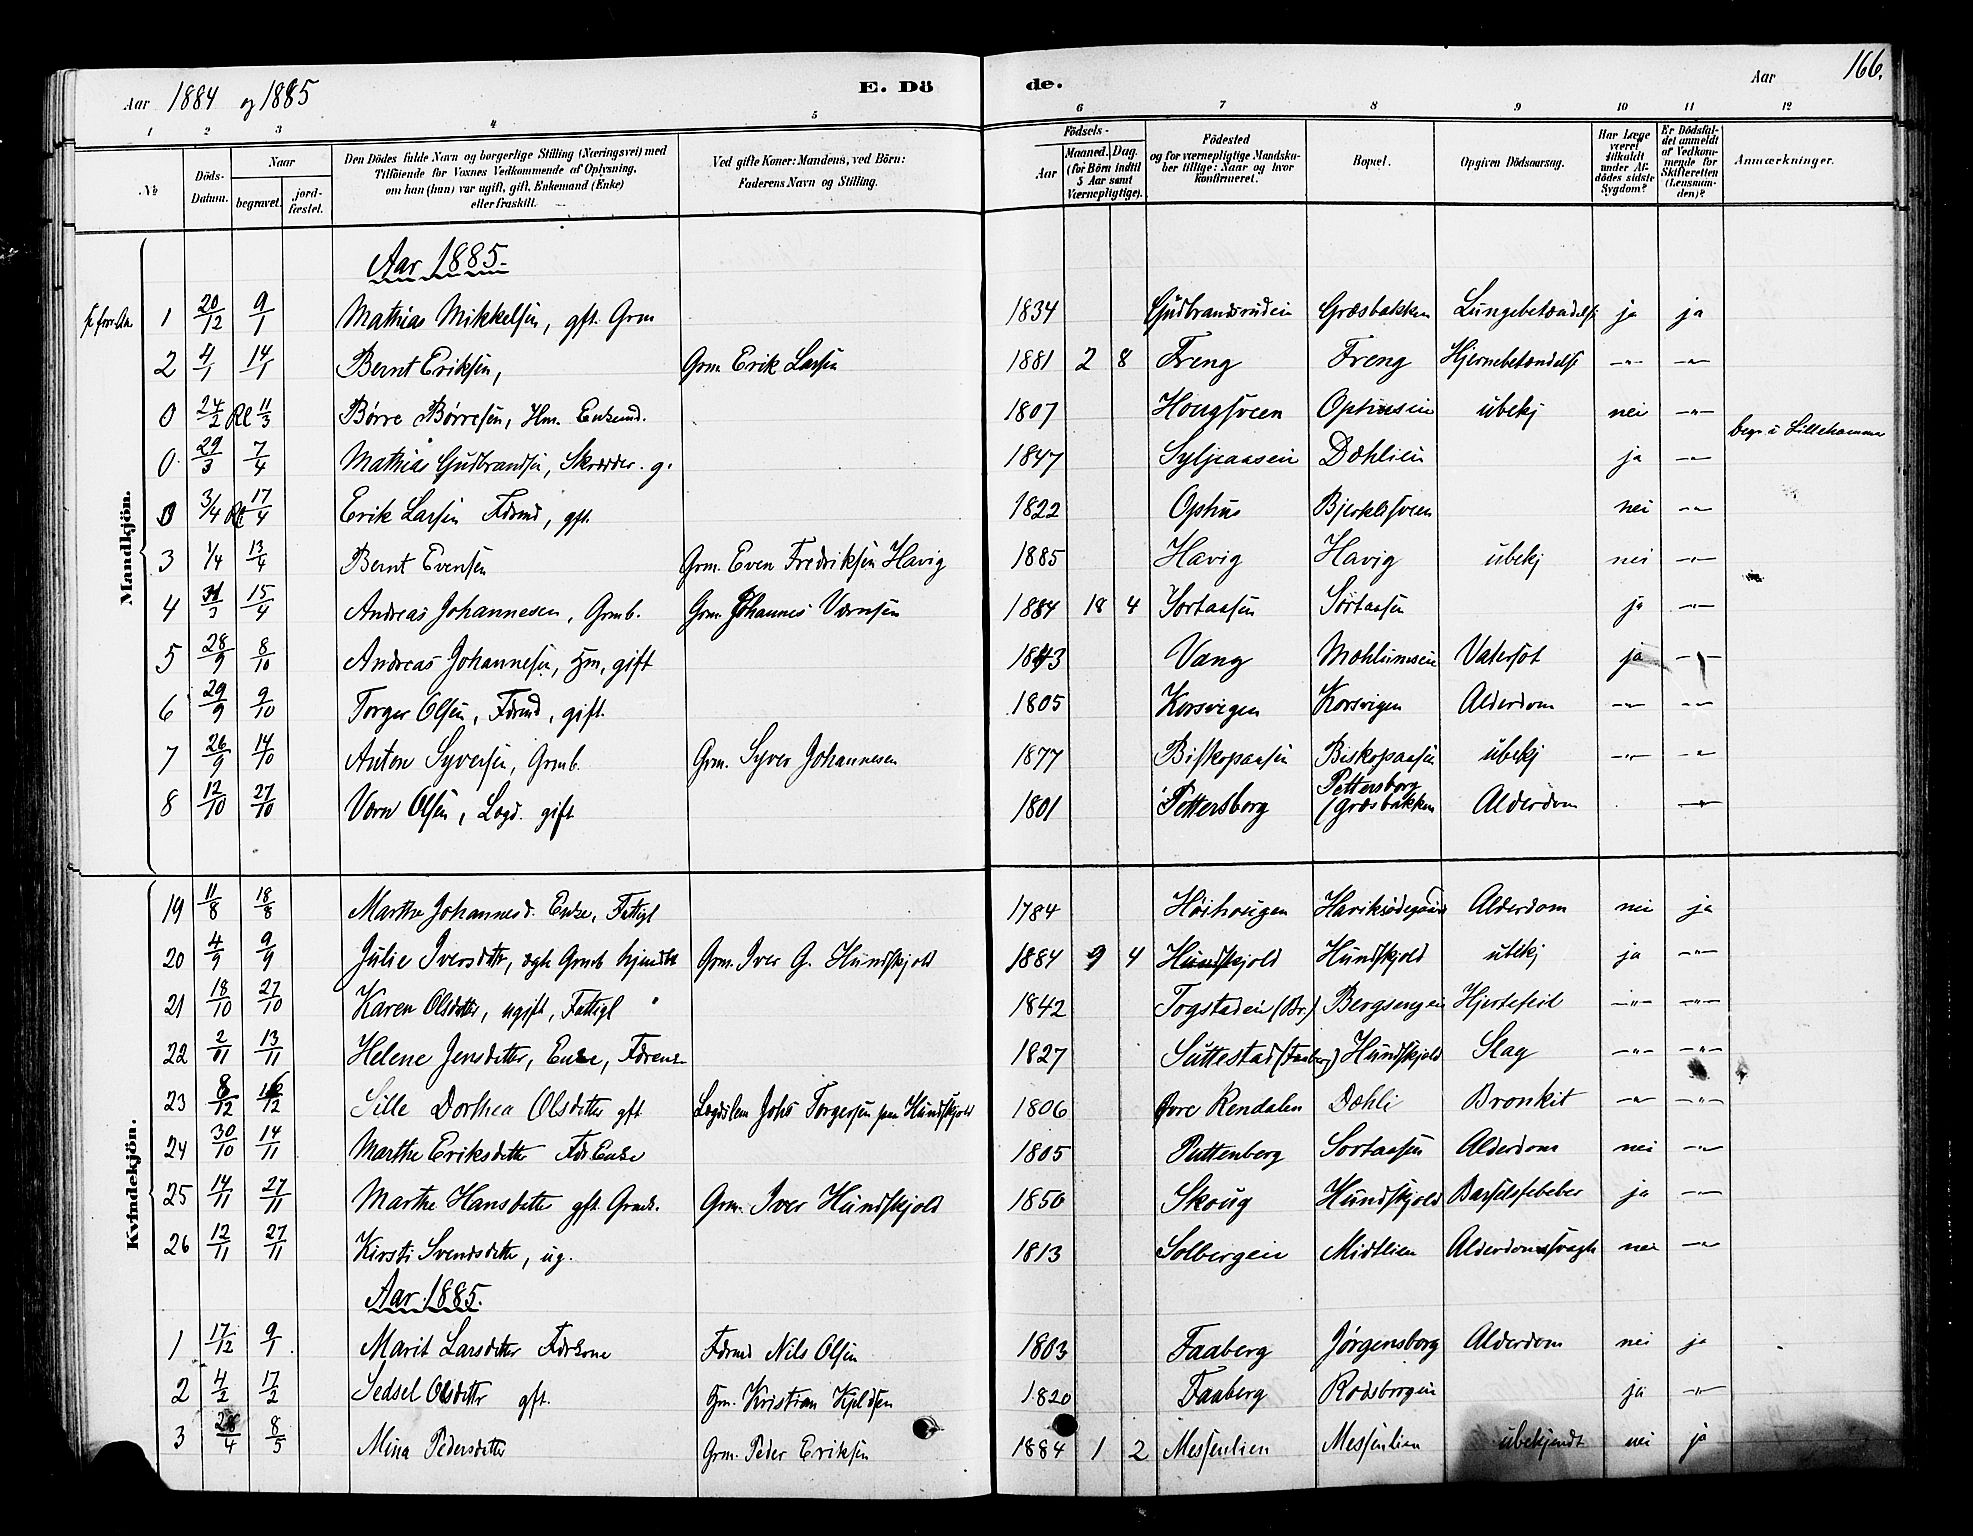 Aar 1884 og 1885 E. Dö de. Aar 166.
1 2 3 4 5 6 7 8 9 10 11 12
№ Döds-Datum. Naar begravet. jord-fæstet. Den Dödes fulde Navn og borgerlige Stilling (Næringsvei) med Tilföiende for Voxnes Vedkommende af Oplysning, om han (hun) var ugift, gift, Enkemand (Enke) eller fraskilt. Ved gifte Koner: Mandens, ved Börn: Faderens Navn og Stilling. Födsels- Aar Maaned. Dag. (for Börn indtil 5 Aar samt Værnepligtige). Födested og for værnepligtige Mandskaber tillige: Naar og hvor konfirmeret. Bopæl. Opgiven Dödsaarsag. Har Læge været tilkaldt under Afdödes sidste Sygdom? Er Dödsfaldet anmeldt af Vedkommende for Skifteretten (Lensmanden)? Anmærkninger.
Mandkjön.
Aar 1885.
1 20/12 9/1 Mathias Mikkelsen, gft. Grm 1834 Gudbrandsrudein Græsbakken Lungebetændelse ja ja
2 4/1 14/1 Bernt Eriksen, Grm Erik Larsen 1881 2 8 Freng Freng Hjernebetændelse -"- -"-
0 24/2 11/3 Børre Børresen, Hm. Enkemd. 1807 Hougsveen Ophuusein ubekj nei -"-
0 29/3 7/4 Mathias Gudbrandsen, Skrædder. g. 1847 Syljeaasen Dæhlien ja -"- begr. i Lillehammer
0 3/4 17/4 Erik Larsen Fdrmd, gft. 1822 Ophus Bjerkesveen nei -"-
3 1/4 13/4 Bernt Evensen Grm. Even Fredriksen Havig 1885 Havig Havig ubekj nei -"-
4 31/3 15/4 Andreas Johannesen, Grmb. Grm. Johannes Værnsen 1884 18 4 Sortaasen Sørtaasen ja -"-
5 28/9 8/10 Andreas Johannesen, Hm, gift 1843 Vang Mæhlumseie Vatersot ja -"-
6 29/9 9/10 Torger Olsen, Fdrmd, gift. 1805 Korsvigen Korsvigen Alderdom -"- -"-
7 26/9 14/10 Anton Syversen, Grmb. Grm. Syver Johannesen 1877 Biskopaasen Biskopaasen ubekj -"- -"-
8 12/10 27/10 Værn Olsen, Logd. gift 1801 Pettersborg Pettersborg (Græsbakken Alderdom -"-
Kvindekjön.
19 11/8 18/8 Marthe Johannesd. Enke, Fattigl 1784 Høihougen Haviksødegaard Alderdom nei ja
20 4/9 9/9 Julie Iversdtr, ægte Grmb hjemdbt Grm. Iver G. Hundskjold 1884 9 4 Hundskjold Hundskjold ubekj ja -"-
21 18/10 27/10 Karen Olsdatter, ugift, Fattigl 1842 Togstadein (Br.) Bergsengen Hjertefeil -"- -"-
22 2/11 13/11 Helene Jensdatter, Enke, Fdrenk 1827 Suttestad (Faaberg) Hundskjold Slag -"- -"-
23 8/12 Sille Dorthea Olsdatter gft Johs Torgersen Hundskjold 1806 Øvre Rendalen Dæhli Bronkit -"- -"-
24 30/10 14/11 Marthe Eriksdatter FdrEnke 1805 Puttenberg Sortaasen Alderdom nei -"-
25 14/11 27/11 Marthe Hansdatter gft. Grmk. Grm. Iver Hundskjold 1850 Skoug Hundskjold Barselsfeber ja -"-
26 12/11 27/11 Kirsti Svendsdatter, ug. 1813 Solbergeie Midtlien Alderdomssvagh nei -"-
Aar 1885.
1 17/12 9/1 Marit Larsdatter Fdrkone Fdrmd Nils Olsen 1803 Faaberg Jørgensborg Alderdom nei ja
2 4/2 17/2 Sedsel Olsdatter gft. Hm. Kristian Kjeldsen 1820 Faaberg Rødsborgen ja -"-
3 28/4 8/5 Mina Pedersdatter Grm. Peder Eriksen 1884 1 2 Messenlien Messenlien ubekjendt nei ja